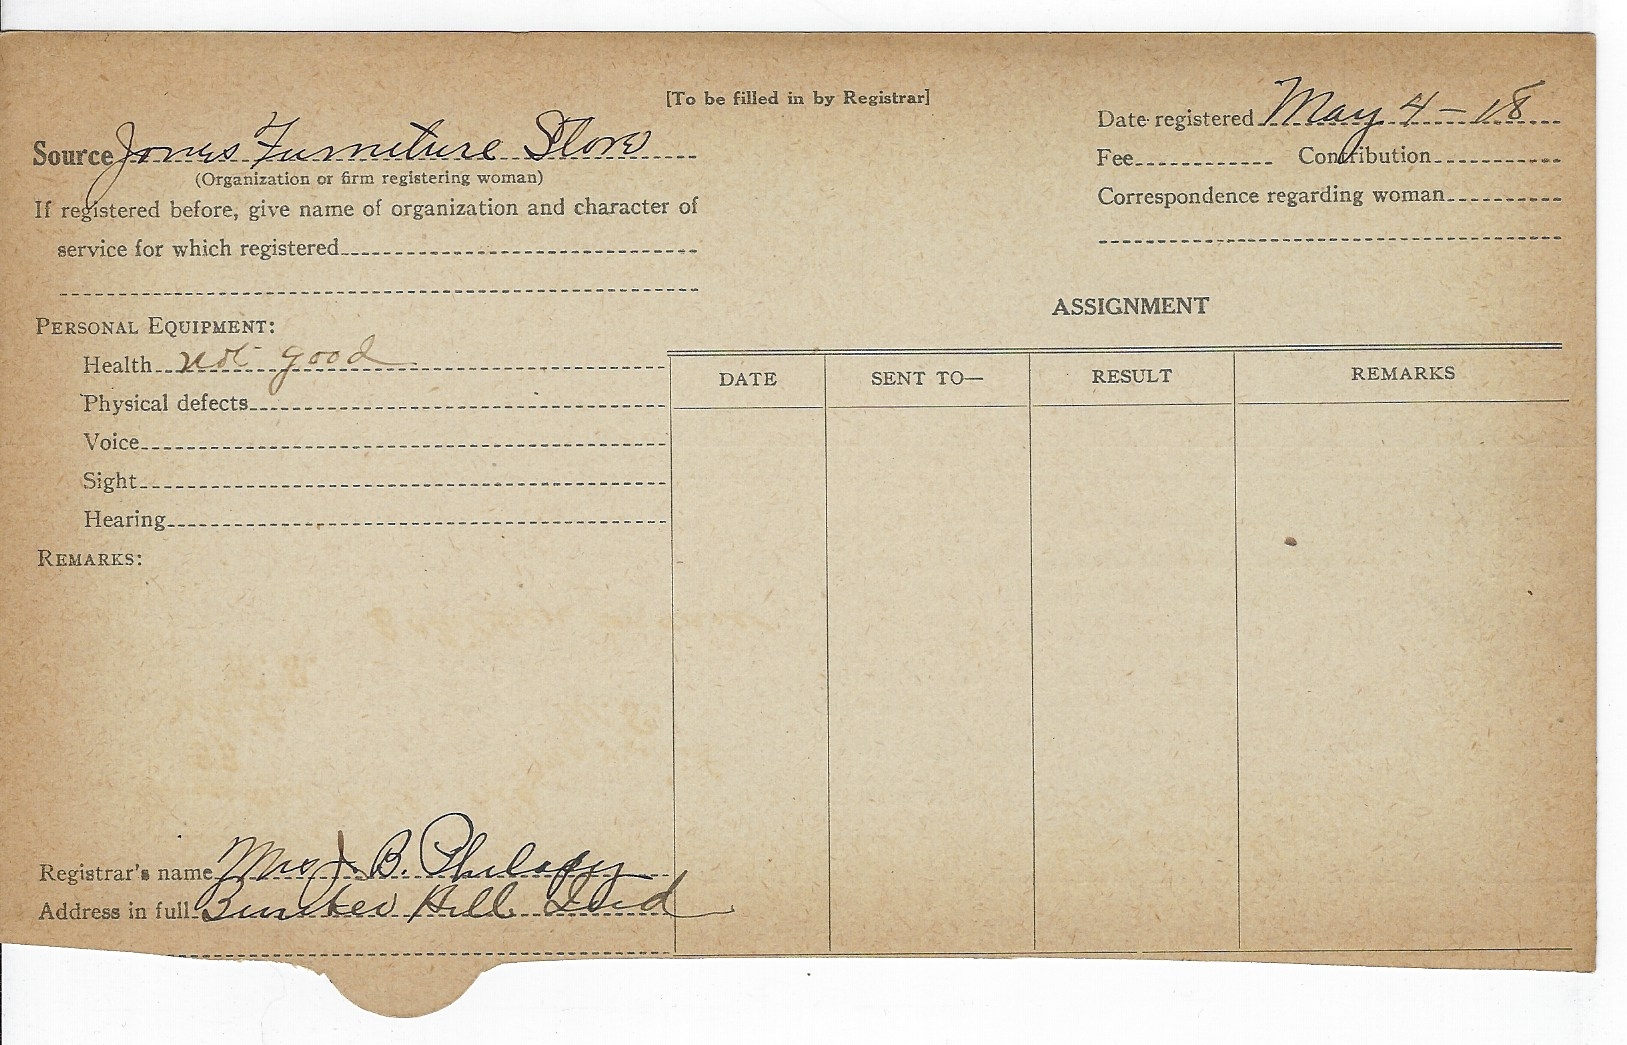 [To be filled in by Registrar]
Source Jones Furniture Store
(Organization or firm registering woman)
If registered before, give name of organization and character of
service for which registered
PERSONAL EQUIPMENT:
Health not good
Physical defects
Voice
Sight
Hearing
REMARKS:
Registrar's name Mrs J. B.
Address in full Bunker Hill Ind
Date registered May 4 - 18
Fee Contribution
Correspondence regarding woman
ASSIGNMENT
DATE SENT TO— RESULT REMARKS